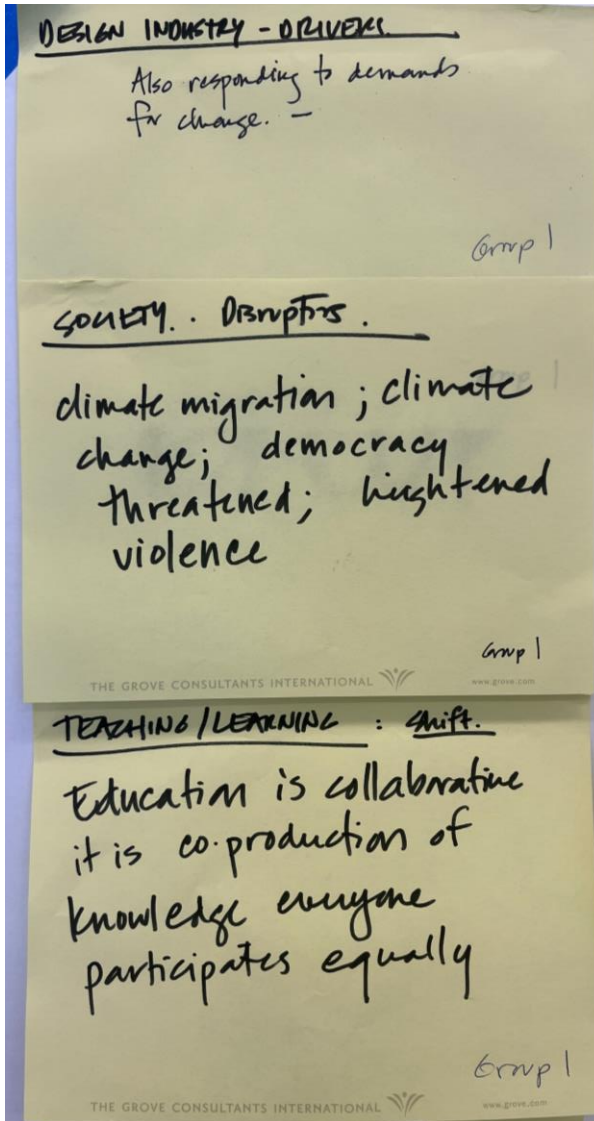 DESIGN INDUSTRY - DRIVERS.
Also responding to demands
for change. -
Group 1
SOCIETY. . DISRUPTORS.
climate migration ; climate
change; democracy
threatened; heightened
violence
Group 1
THE GROVE CONSULTANTS INTERNATIONAL www.grove.com
TEACHING / LEARNING : Shift.
Education is collaborative
it is co-production of
knowledge everyone
participates equally
Group 1
THE GROVE CONSULTANTS INTERNATIONAL www.grove.com